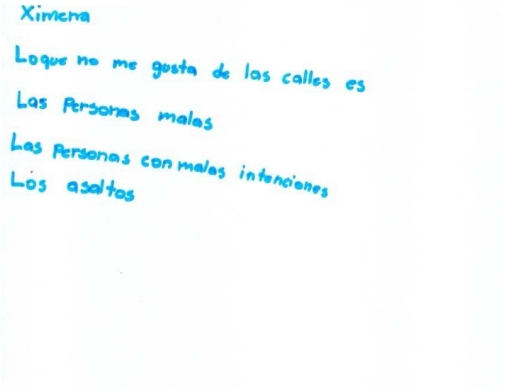 Ximena
Loque no me gusta de las calles es
Las Personas malas
Las Personas con malas intenciones
Los asaltos